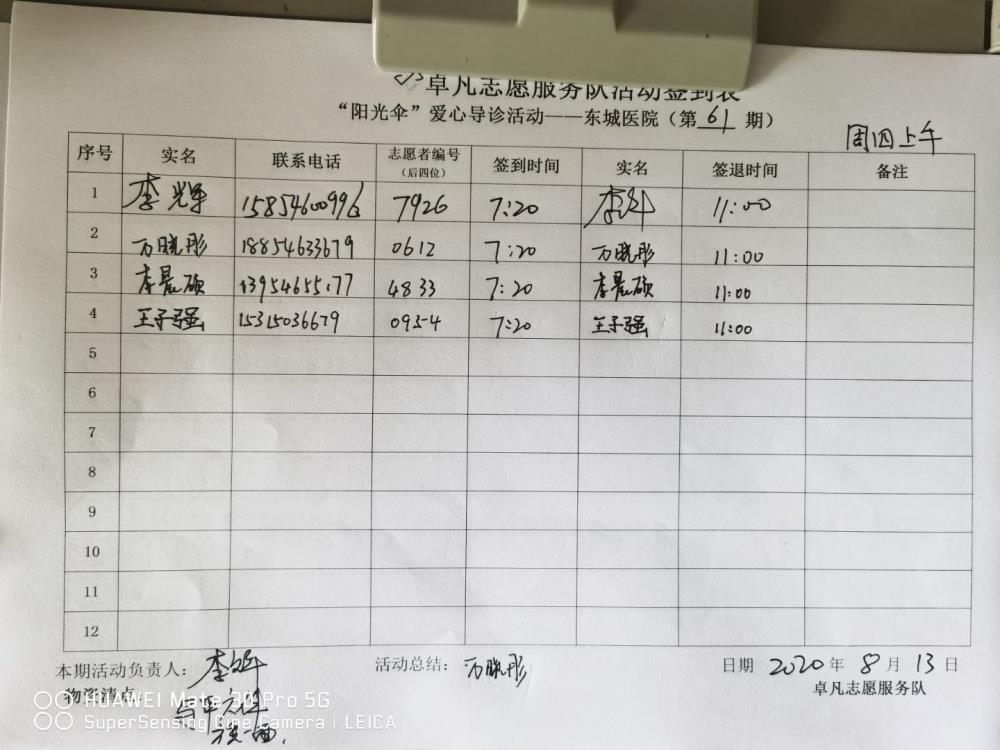 卓凡志愿服务队活动签到表
“阳光伞”爱心导诊活动——东城医院（第 61 期）
周四上午
序号 实名 联系电话 志愿者编号（后四位） 签到时间 实名 签退时间 备注
1 李光军 15854600996 7926 7:20 李 11:00
2 万晓彤 18854633679 0612 7:20 万晓彤 11:00
3 李晨硕 13954655177 4833 7:20 李晨硕 11:00
4 王子强 15315036679 0954 7:20 王子强 11:00
5
6
7
8
9
10
11
12
本期活动负责人： 李 活动总结： 万晓彤 日期 2020 年 8 月 13 日
物资清点 卓凡志愿服务队
HUAWEI Mate 30 Pro 5G
SuperSensing Cine Camera | LEICA